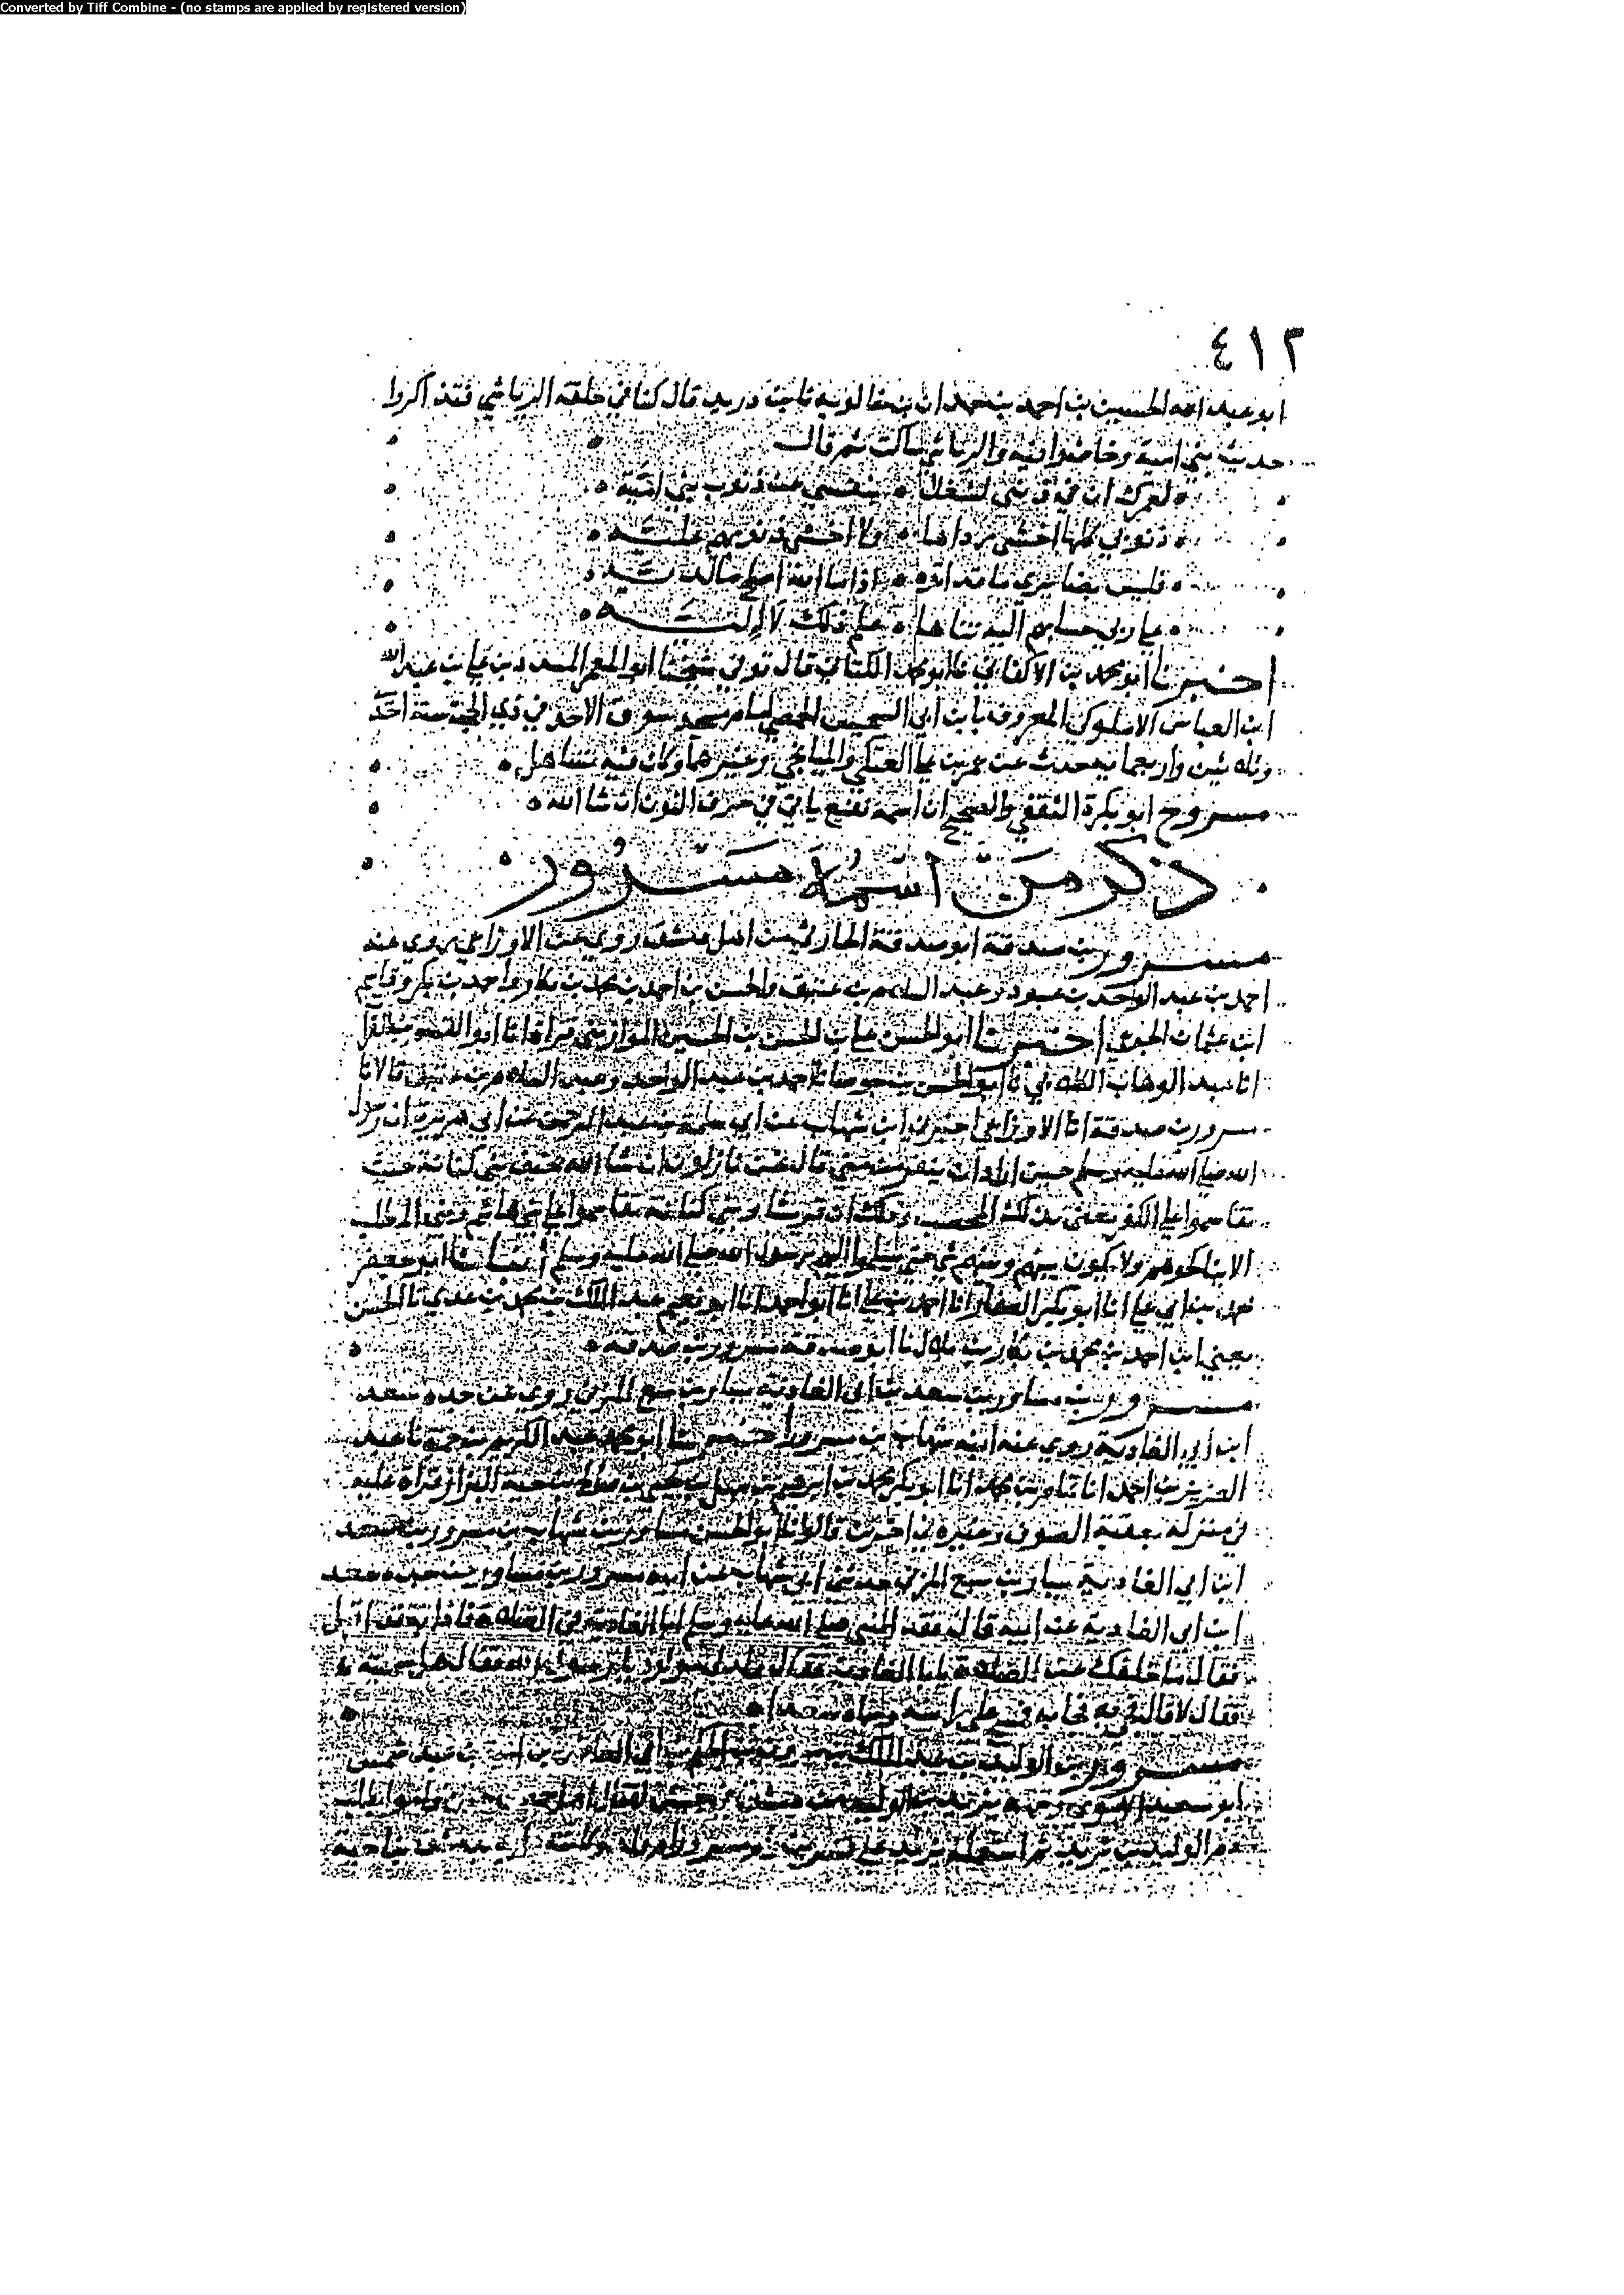 Converted by Tiff Combine - (no stamps are applied by registered version)
٤١٢
ابو عبد الله الحسين بن احمد بن حمدان بن خالويه نا ابن دريد قال كنا في حلقه الرياشي فتذاكروا
حديث بني امية وخاضوا فيه والرياشي ساكت ثم قال
لعمرك ان في ذنبي لشغلا ه بنفسي عن ذنوب بني امية ه
ذنوبي كلها اخشى رداها ه ولا اخشى ذنوبهم عليه ه
فليس بضايري ما قد اتوه ه اذا ما الله اصلح ما لديه
على ربي حسابهم اليه تناها ه علم ذلك لا اليه ه
اخبرنا ابو محمد بن الاكفاني نا ابو محمد الكتاني قال توفي شيخنا ابو المعمر المسدد بن علي بن عبد الله
ابن العباس الاملوكي المعروف بابن ابي السجيس الحمصي امام مسجد سوق الاحد في ذي الحجة سنة احدى
وثلاثين واربعمائة حدث عن عمر بن علي العتكي والميانجي وغيرهما وكان فيه تساهل ه
مسروح ابو بكرة الثقفي والصحيح ان اسمه نفيع ياتي في حرف النون ان شا الله ه
ذكر من اسمه مسرور
مسرور بن صدقة ابو صدقة الحارثي من اهل دمشق روى عن الاوزاعي روى عنه
احمد بن عبد الواحد بن عبود وعبد السلام بن عتيق والحسن بن احمد بن محمد بن بكار واحمد بن بكر وقاسم
ابن عثمان الجوعي اخبرنا ابو الحسن علي بن الحسن بن الحسين الموازيني قراة انا ابو القسم بن الفرا
انا عبد الوهاب الكلابي نا ابو الحسن بن جوصا نا احمد بن عبد الواحد وعبد السلام بن عتيق قالا نا
مسرور بن صدقة انا الاوزاعي اخبرني ابن شهاب عن ابي سلمة بن عبد الرحمن عن ابي هريرة ان رسول
الله صلى الله عليه وسلم حين اراد ان ينفر من منى قال نحن نازلون ان شا الله بخيف بني كنانة حيث
تقاسموا على الكفر يعني بذلك المحصب وذلك ان قريشا وبني كنانة تقاسموا على بني هاشم وبني المطلب
الا يناكحوهم ولا يكون بينهم وبينهم شي حتى يسلموا اليهم رسول الله صلى الله عليه وسلم انبانا ابو جعفر
محمد بن ابي علي انا ابو بكر الصفار انا احمد بن علي انا ابو احمد انا ابو نعيم عبد الملك بن محمد بن عدي نا الحسن
يعني ابن احمد بن محمد بن بكار بن بلال نا ابو صدقة مسرور بن صدقة ه
مسرور بن مساور بن سعد بن ابي الغادية يسار بن سبع المزني روى عن جده سعد
ابن ابي الغادية روى عنه ابنه شهاب بن مسرور اخبرنا ابو محمد عبد الكريم بن حمزة نا عبد
العزيز بن احمد انا تمام بن محمد انا ابو بكر محمد بن ابرهيم بن سهل بن يحيى بن صالح بن حية البزاز قراة عليه
في منزله بعقبة الصوف وغيره في اخرين قالوا نا ابو الحسن مساور بن شهاب بن مسرور بن سعد
ابن ابي الغادية يسار بن سبع المزني حدثني ابي شهاب عن ابيه مسرور بن مساور عن جده سعد
ابن ابي الغادية عن ابيه قال فقد النبي صلى الله عليه وسلم ابا الغادية في الصلاة فاذا به قد اقبل
فقال ما خلفك عن الصلاة يا ابا الغادية فقال ولد لي مولود يا رسول الله فقال هل سميته
فقال لا قال فجي به فجا به فمسح على راسه وسماه سعدا ه
مسرور بن الوليد بن عبد الملك بن مروان بن الحكم بن ابي العاص بن امية بن عبد شمس
ابو سعيد الاموي وجهه يزيد بن الوليد من دمشق
دم الوليد بن يزيد ثم استعمله يزيد على قنسرين